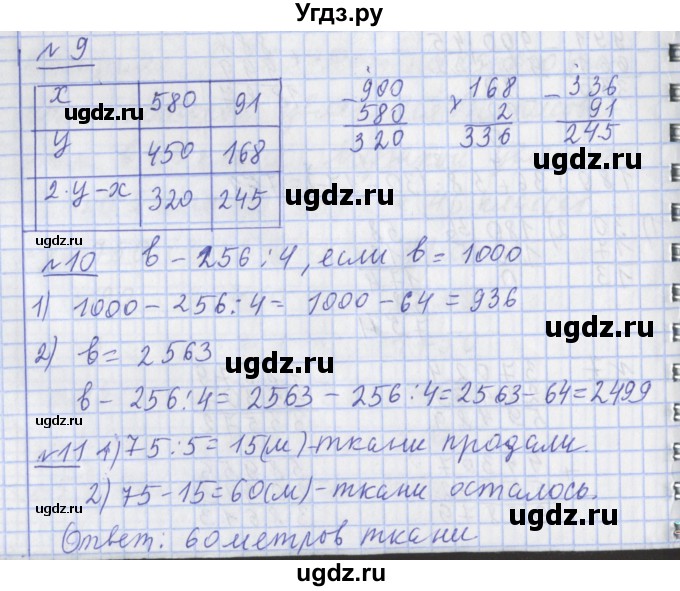 Угдз.ру
№ 9
x 580 91
y 450 168
2·y-x 320 245
- 900
580
320
× 168
2
336
- 336
91
245
ugdz.ru ugdz.ru ugdz.ru
ugdz.ru
ugdz.ru
№10 b - 256 : 4, если b = 1000
1) 1000 - 256 : 4 = 1000 - 64 = 936
ugdz.ru
2) b = 2563
ugdz.ru
b - 256 : 4 = 2563 - 256 : 4 = 2563 - 64 = 2499
ugdz.ru
№11 1) 75 : 5 = 15 (м) - ткани продали.
ugdz.ru
2) 75 - 15 = 60 (м) - ткани осталось.
ugdz.ru
Ответ: 60 метров ткани
ugdz.ru
ugdz.ru